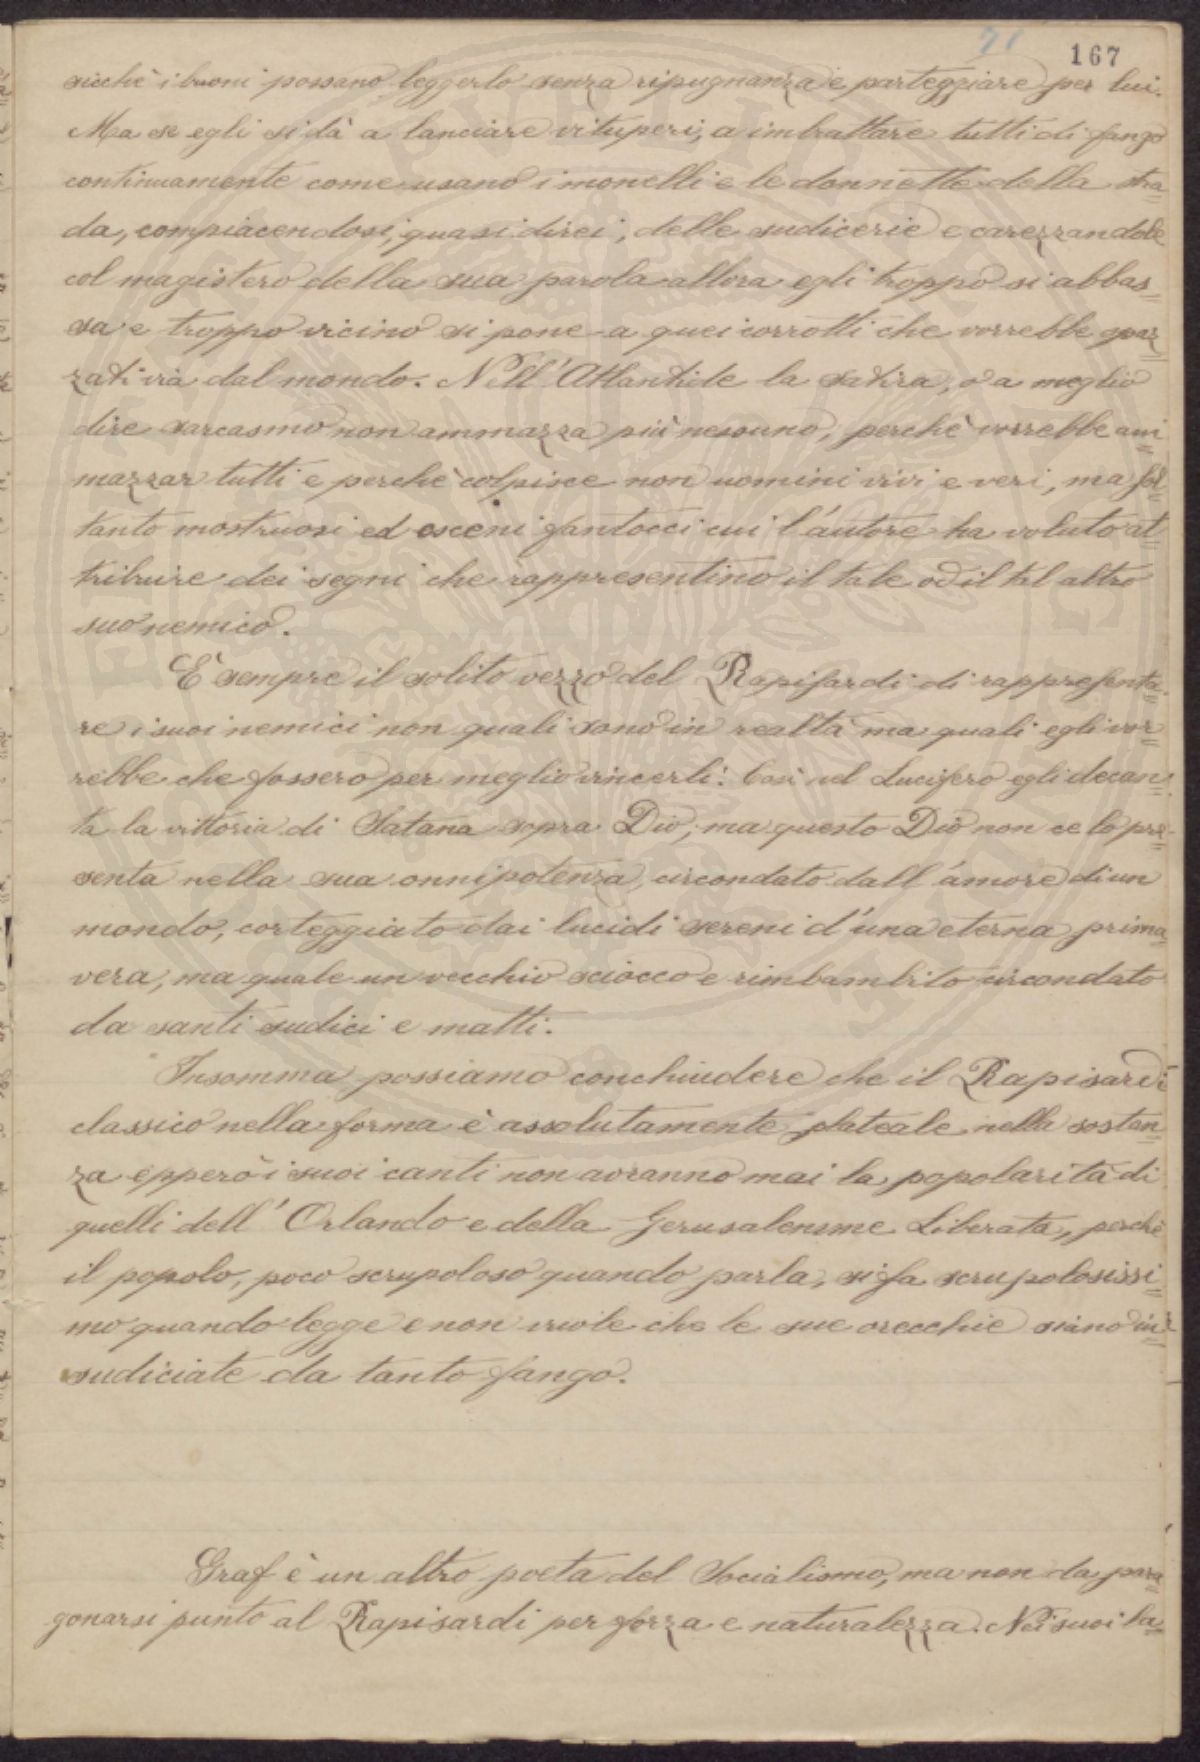 71
167
sicchè i buoni possano leggerlo senza ripugnanza e parteggiare per lui.
Ma se egli si dà a lanciare vituperi, a imbrattare tutti di fango
continuamente come usano i monelli e le donnette della stra
da, compiacendosi, quasi direi, delle sudicerie e carezzandole
col magistero della sua parola allora egli troppo si abbas=
sa e troppo vicino si pone a quei corrotti che vorrebbe spaz=
zati via dal mondo. Nell'Atlantide la satira, o a meglio
dire sarcasmo non ammazza più nessuno, perchè vorrebbe am=
mazzar tutti e perchè colpisce non uomini vivi e veri, ma sol=
tanto mostruosi ed osceni fantocci cui l'autore ha voluto at=
tribuire dei segni che rappresentino il tale od il tal altro
suo nemico.
È sempre il solito vezzo del Rapisardi di rappresenta=
re i suoi nemici non quali sono in realtà ma quali egli vor=
rebbe che fossero per meglio vincerli: Così nel Lucifero egli decan=
ta la vittoria di Satana sopra Dio, ma questo Dio non ce lo pre=
senta nella sua onnipotenza, circondato dall'amore di un
mondo, corteggiato dai lucidi sereni d'una eterna prima=
vera, ma quale un vecchio sciocco e rimbambito circondato
da santi sudici e matti.
Insomma possiamo conchiudere che il Rapisardi
classico nella forma è assolutamente plateale nella sostan=
za epperò i suoi canti non avranno mai la popolarità di
quelli dell'Orlando e della Gerusalemme Liberata, perchè
il popolo, poco scrupoloso quando parla, si fa scrupolosissi=
mo quando legge e non vuole che le sue orecchie siano in=
sudiciate da tanto fango.
Graf è un altro poeta del Socialismo, ma non da para
gonarsi punto al Rapisardi per forza e naturalezza. Nei suoi la=